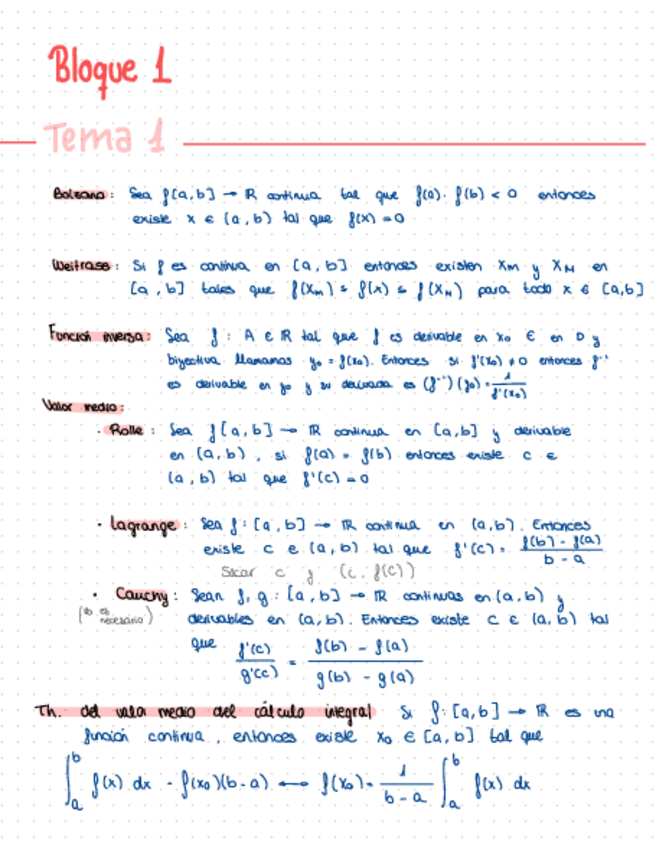 Bloque 1
Tema 1
Bolzano: Sea f[a,b] → ℝ continua tal que f(a)·f(b) < 0 entonces
existe x ∈ (a,b) tal que f(x) = 0
Weitrass: Si f es continua en [a,b] entonces existen xm y xM en
[a,b] tales que f(xm) ≤ f(x) ≤ f(xM) para todo x ∈ [a,b]
Función inversa: Sea f: A ∈ ℝ tal que f es derivable en x₀ ∈ en D y
biyectiva llamamos y₀ = f(x₀). Entonces si f'(x₀) ≠ 0 entonces f⁻¹
es derivable en y₀ y su derivada es (f⁻¹)(y₀) = 1/f'(x₀)
Valor medio:
· Rolle: Sea f[a,b] → ℝ continua en [a,b] y derivable
en (a,b), si f(a) = f(b) entonces existe c ∈
(a,b) tal que f'(c) = 0
· Lagrange: Sea f: [a,b] → ℝ continua en (a,b). Entonces
existe c ∈ (a,b) tal que f'(c) = f(b) - f(a) / b - a
Sacar c y (c, f(c))
· Cauchy: Sean f, g: [a,b] → ℝ continuas en (a,b) y
(no es necesario) derivables en (a,b). Entonces existe c ∈ (a,b) tal
que f'(c)/g'(c) = f(b) - f(a) / g(b) - g(a)
Th. del valor medio del cálculo integral Si f: [a,b] → ℝ es una
función continua, entonces existe x₀ ∈ [a,b] tal que
∫ₐᵇ f(x) dx = f(x₀)(b-a) ⟷ f(x₀) = 1/(b-a) ∫ₐᵇ f(x) dx